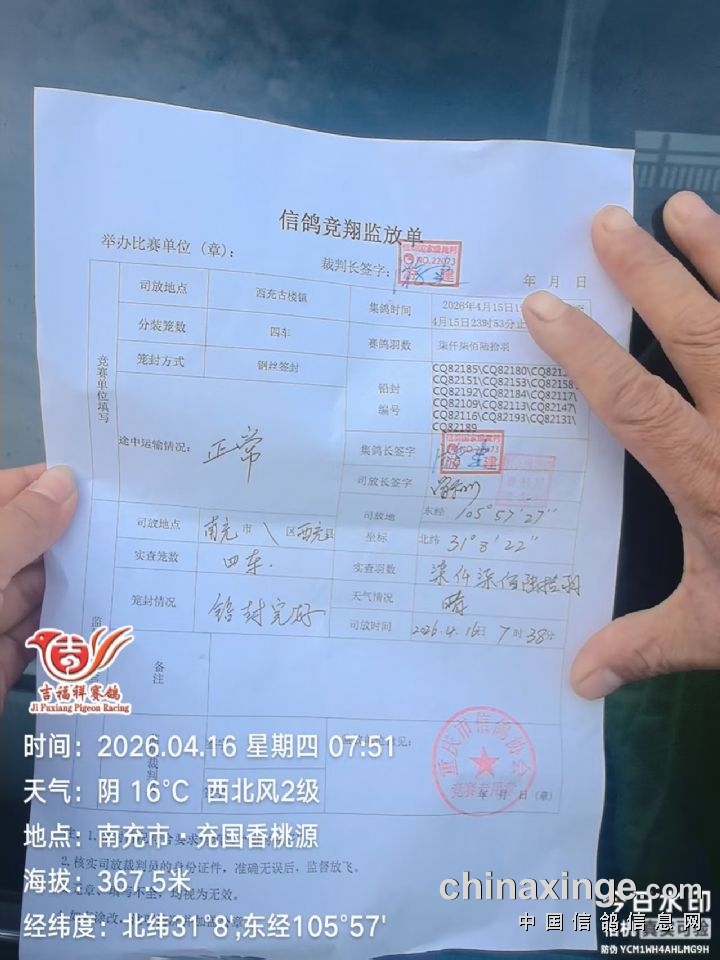 信鸽竞翔监放单
举办比赛单位（章）：
裁判长签字：
信鸽国家级裁判
NO.22073
年 月 日
竞赛单位填写
司放地点 西充古楼镇 集鸽时间 2026年4月15日1
4月15日23时53分止
分装笼数 四车 赛鸽羽数 柒仟柒佰陆拾羽
笼封方式 钢丝签封 铅封编号
CQ82185\CQ82180\CQ812
CQ82151\CQ82153\CQ82158
CQ82192\CQ82184\CQ82117\
CQ82109\CQ82113\CQ82147\
CQ82116\CQ82193\CQ82131\
CQ82189
途中运输情况： 正常
集鸽长签字
司放长签字
司放地坐标 东经 105°57′27″
北纬 31°8′22″
司放地点 南充市 \ 区西充县
实查笼数 四车. 实查羽数 柒仟柒佰陆拾羽
笼封情况 铅封完好 天气情况 晴
司放时间 2026.4.16日 7时38分
备注
裁判
意见：
重庆市信鸽协会
竞赛专用章
年 月 日（章）
2.核实司放裁判员的身份证件，准确无误后，监督放飞。
均视为无效。
吉福祥赛鸽
Ji Fuxiang Pigeon Racing
时间：2026.04.16 星期四 07:51
天气：阴 16°C 西北风2级
地点：南充市·充国香桃源
海拔：367.5米
经纬度：北纬31°8′,东经105°57'
chinaxinge.com
中国信鸽信息网
今日水印
相机 真实可验
防伪 YCM1WH4AHLMG9H